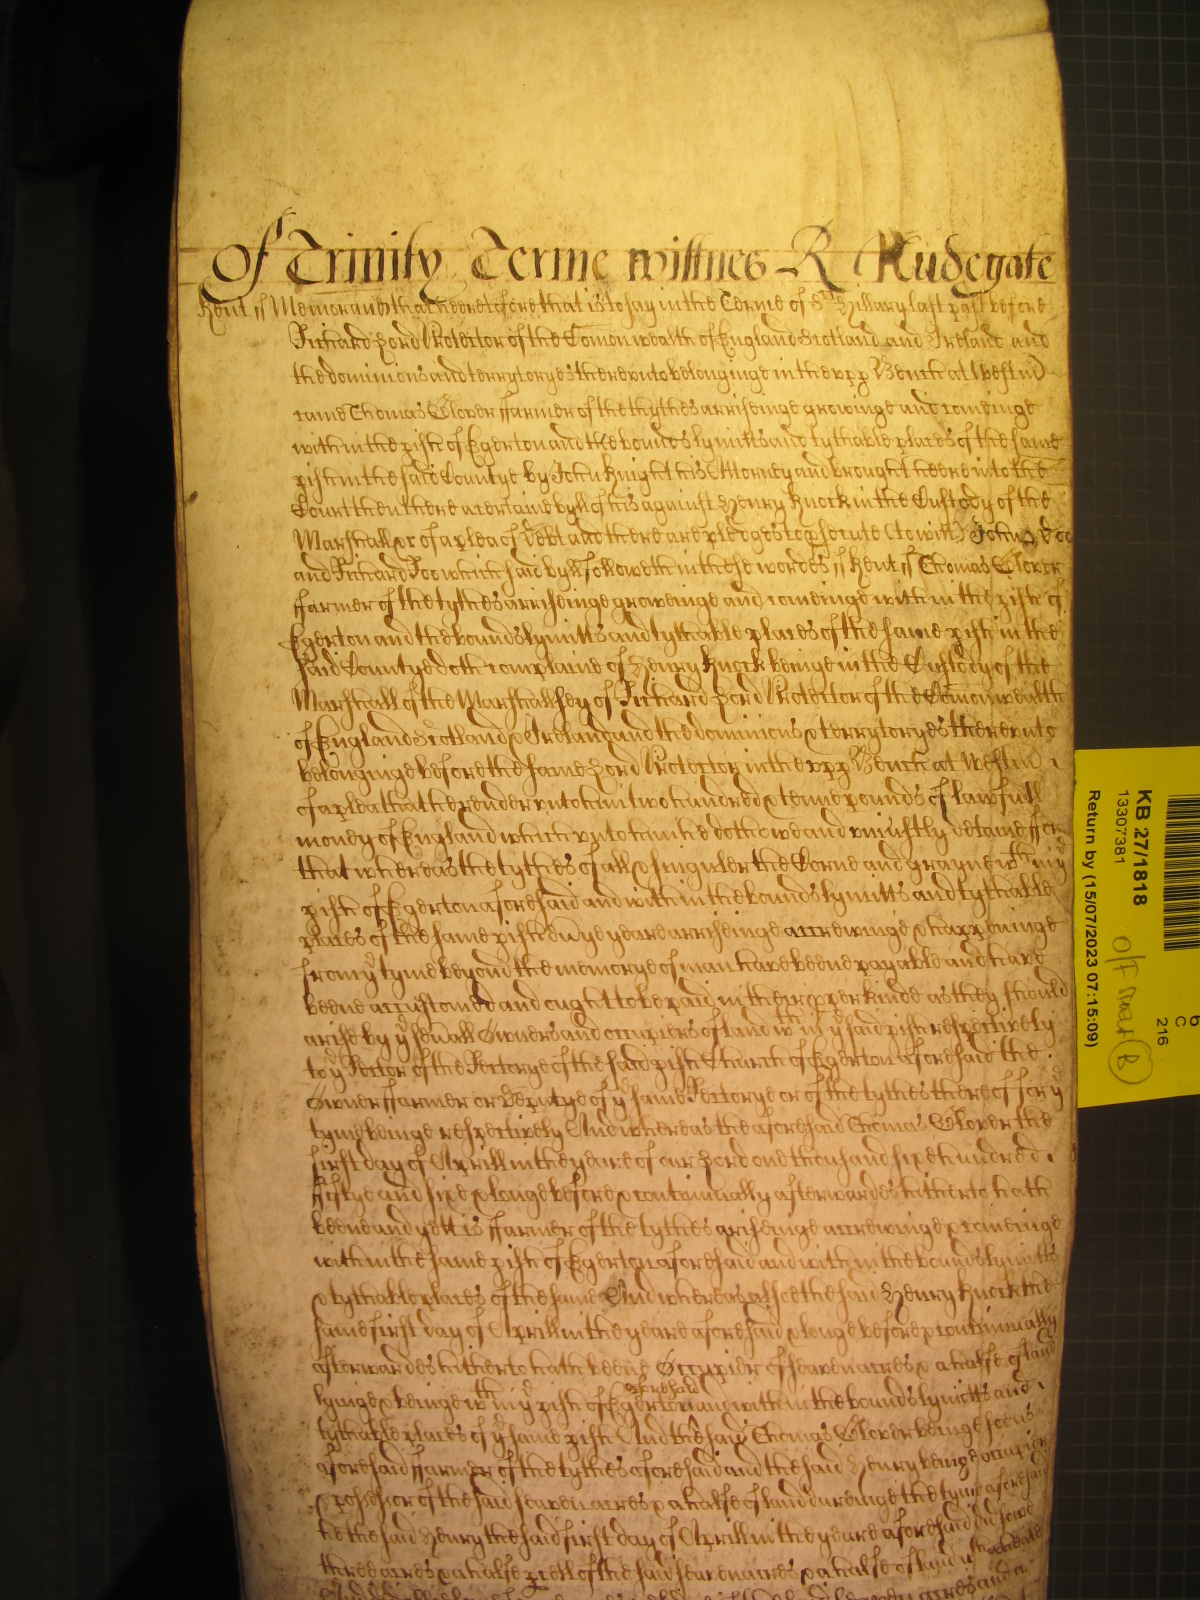 Of Trinity Terme wittnes R Rudegate
Kent ss Memorand that heretofore that is to say in the Terme of St Hillary last past before
Richard Lord Protector of the Comonwealth of England Scotland and Ireland and
the dominions and terrytoryes thereunto belonginge in the upp Bench at Westm
came Thomas Glover ffarmer of the tythes arriseinge growinge and comeinge
within the pish of Egerton and the bounds lymitts and tythable places of the same
pish in the said Countye by John Knight his Attorney and brought heere into the
Court then there a certaine byll of his against Henry Knock in the Custody of the
Marshall &c of a plea of Debt and there are pledges to psecute (to witt) John Doe
and Richard Roe which said byll followeth in these wordes ss Kent ss Thomas Glover
ffarmer of the tythes arriseinge groweinge and comeinge within the pishe of
Egerton and the bounds lymitts and tythable places of the same pish in the
said Countye doth complaine of Henry Knock beinge in the Custody of the
Marshall of the Marshallsey of Richard Lord Protector of the Comonwealth
of England Scotland & Ireland and the dominions & terrytoryes thereunto
belonginge before the same Lord Protector in the upp Bench at Westm
of a plea that he render unto him two hundred & tenne pounds of lawfull
money of England which unto him he doth owe and uniustly detaine ffor
that whereas the tythes of all & singuler the Corne and grayne wthin ye
pish of Egerton aforesaid and within the bounds lymitts and tythable
places of the same pish ev'ye yeare arriseinge accrewinge & happeninge
from ye tyme beyond the memorye of man have beene payable and have
beene accustomed and ought to be paid in their pper kinde as they should
arise by ye sev'all Owners and occupiers of land wth in ye said pish respectively
to ye Rector of the Rectorye of the said pish Church of Egerton aforesaid the
Owner ffarmer or Deputye of ye same Rectorye or of the tythes thereof for ye
tyme beinge respectively And whereas the aforesaid Thomas Glover the
first day of Aprill in the yeare of our Lord one thousand sixe hundred
fiftye and sixe & longe before & continually afterwardes hitherto hath
beene and yett is ffarmer of the tythes ariseinge accrewinge & comeinge
within the same pish of Egerton aforesaid and within the bounds lymitts
& tythable places of the same And whereas alsoe the said Henry Knock the
same first day of Aprill in the yeare aforesaid & longe before & continually
afterwardes hitherto hath beene Occupier of seaven acres & a halfe of land
lyinge & beinge wth in ye pish of Egerton aforesaid and within the bounds lymitts and
tythable places of ye same pish And the said Thomas Glover beinge soe as
aforesaid ffarmer of the tythes aforesaid and the said Henry beinge occupier
& possessor of the said seaven acres & a halfe of land dureinge the tyme aforesaid
he the said Henry the said first day of Aprill in the yeare aforesaid did sowe
three acres & a halfe pcell of the said seaven acres & a halfe of land
KB 27/1818
13307381
Return by (15/07/2023 07:15:09)
C
216